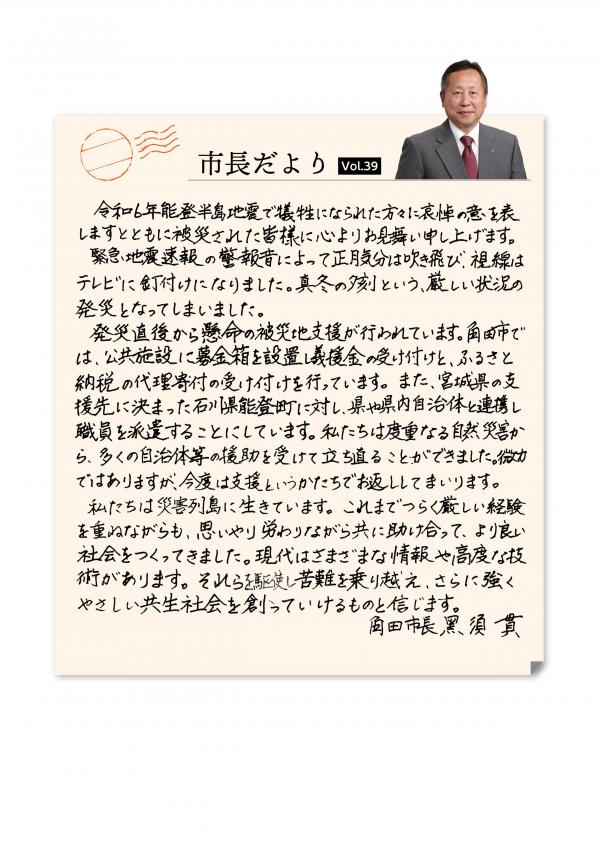 市長だより Vol.39
令和6年能登半島地震で犠牲になられた方々に哀悼の意を表
しますとともに被災された皆様に心よりお見舞い申し上げます。
緊急地震速報の警報音によって正月気分は吹き飛び、視線は
テレビに釘付けになりました。真冬の夕刻という、厳しい状況の
発災となってしまいました。
発災直後から懸命の被災地支援が行われています。角田市で
は、公共施設に募金箱を設置し義援金の受け付けと、ふるさと
納税の代理寄付の受け付けを行っています。また、宮城県の支
援先に決まった石川県能登町に対し、県や県内自治体と連携し
職員を派遣することにしています。私たちは度重なる自然災害か
ら、多くの自治体等の援助を受けて立ち直ることができました。微力
ではありますが、今度は支援というかたちでお返ししてまいります。
私たちは災害列島に生きています。これまでつらく厳しい経験
を重ねながらも、思いやり労わりながら共に助け合って、より良い
社会をつくってきました。現代はさまざまな情報や高度な技
術があります。それらを駆使し苦難を乗り越え、さらに強く
やさしい共生社会を創っていけるものと信じます。
角田市長 黒須 貫